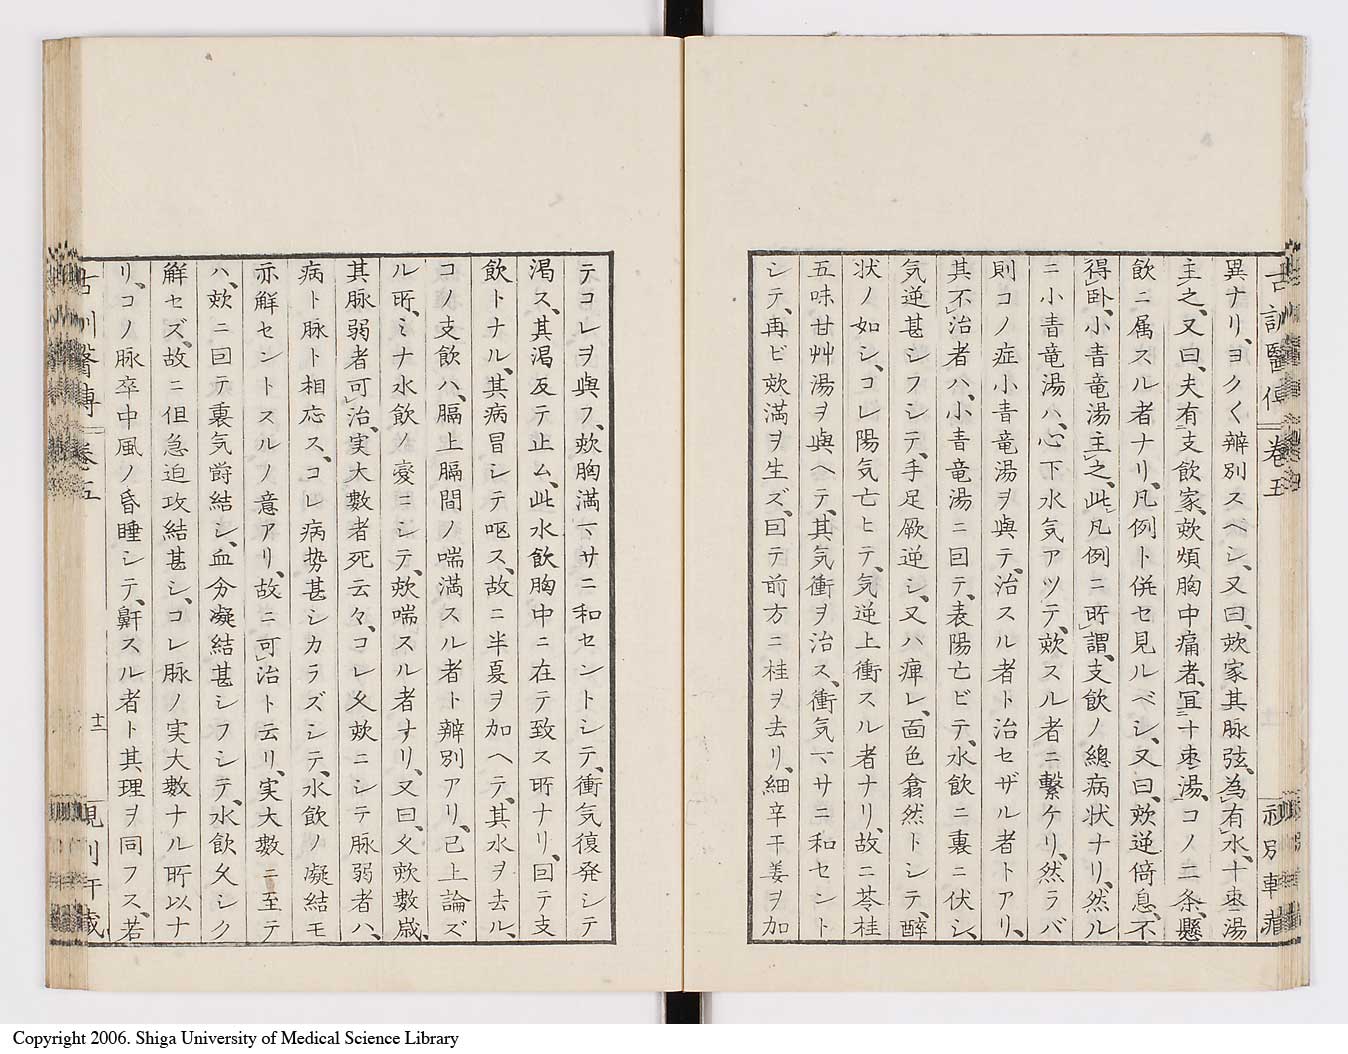 異ナリ、ヨクく辨別スベシ、又曰、欬家其脈弦、為有水、十枣湯
主之、又曰、夫有支飲家、欬煩胸中痛者、冝十枣湯、コノ二条、懸
飲ニ属スル者ナリ、凡例ト併セ見ルベシ、又曰、欬逆倚息、不
得臥、小青竜湯主之、此凡例ニ所謂、支飲ノ總病状ナリ、然ル
ニ小青竜湯ハ、心下水気アツテ、欬スル者ニ繫ケリ、然ラバ
則コノ症小青竜湯ヲ與テ、治スル者ト治セザル者トアリ、
其不治者ハ、小青竜湯ニ因テ、表陽亡ビテ、水飲ニ裏ニ伏シ、
気逆甚シフシテ、手足厥逆シ、又ハ痺レ、面色翕然トシテ、醉
状ノ如シ、コレ陽気亡ヒテ、気逆上衝スル者ナリ、故ニ苓桂
五味甘艸湯ヲ與ヘテ、其気衝ヲ治ス、衝気マサニ和セント
シテ、再ビ欬満ヲ生ズ、因テ前方ニ桂ヲ去リ、細辛干姜ヲ加
テコレヲ與フ、欬胸満マサニ和セントシテ、衝気復発シテ
渇ス、其渇反テ止ム、此水飲胸中ニ在テ致ス所ナリ、因テ支
飲トナル、其病冒シテ呕ス、故ニ半夏ヲ加ヘテ、其水ヲ去ル、
コノ支飲ハ、膈上膈間ノ喘満スル者ト辨別アリ、已上論ズ
ル所、ミナ水飲ノ変ニシテ、欬喘スル者ナリ、又曰、久欬數歳、
其脈弱者可治、実大數者死云々、コレ久欬ニシテ脈弱者ハ、
病ト脈ト相応ス、コレ病勢甚シカラズシテ、水飲ノ凝結モ
亦解セントスルノ意アリ、故ニ可治ト云リ、実大數ニ至テ
ハ、欬ニ因テ裏気欝結シ、血分凝結甚シフシテ、水飲久シク
解セズ、故ニ但急迫攻結甚シ、コレ脈ノ実大數ナル所以ナ
リ、コノ脈卒中風ノ昏睡シテ、鼾スル者ト其理ヲ同フス、若
古訓醫傳 卷五
十二
Copyright 2006. Shiga University of Medical Science Library